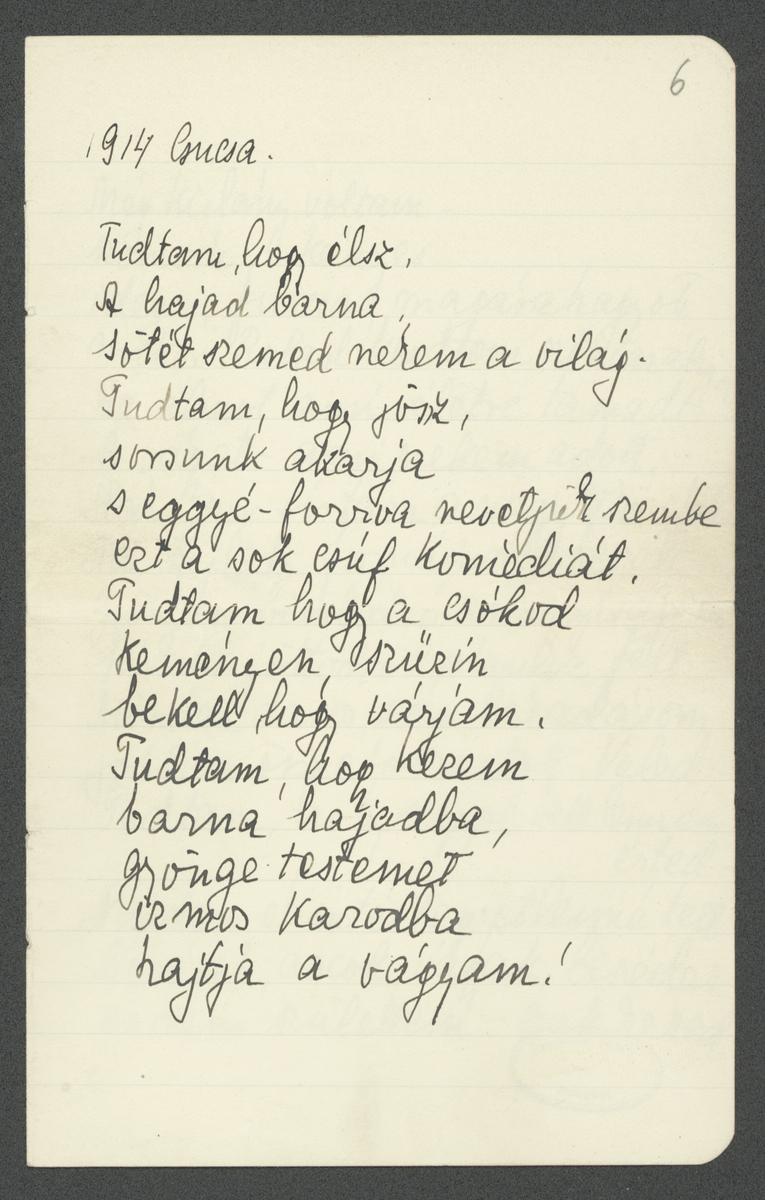 6
1914 Csucsa.
Tudtam, hogy élsz,
A hajad barna,
sötét szemed nekem a világ.
Tudtam, hogy jösz,
sorsunk akarja
s eggyé-forrva szembe
ezt a sok csúf komédiát.
Tudtam hogy a csókod
keményen, szüzin
bekell, hogy várjam.
Tudtam, hogy kezem
barna hajadba,
gyönge testemet
izmos karodba
hajtja a vágyam!